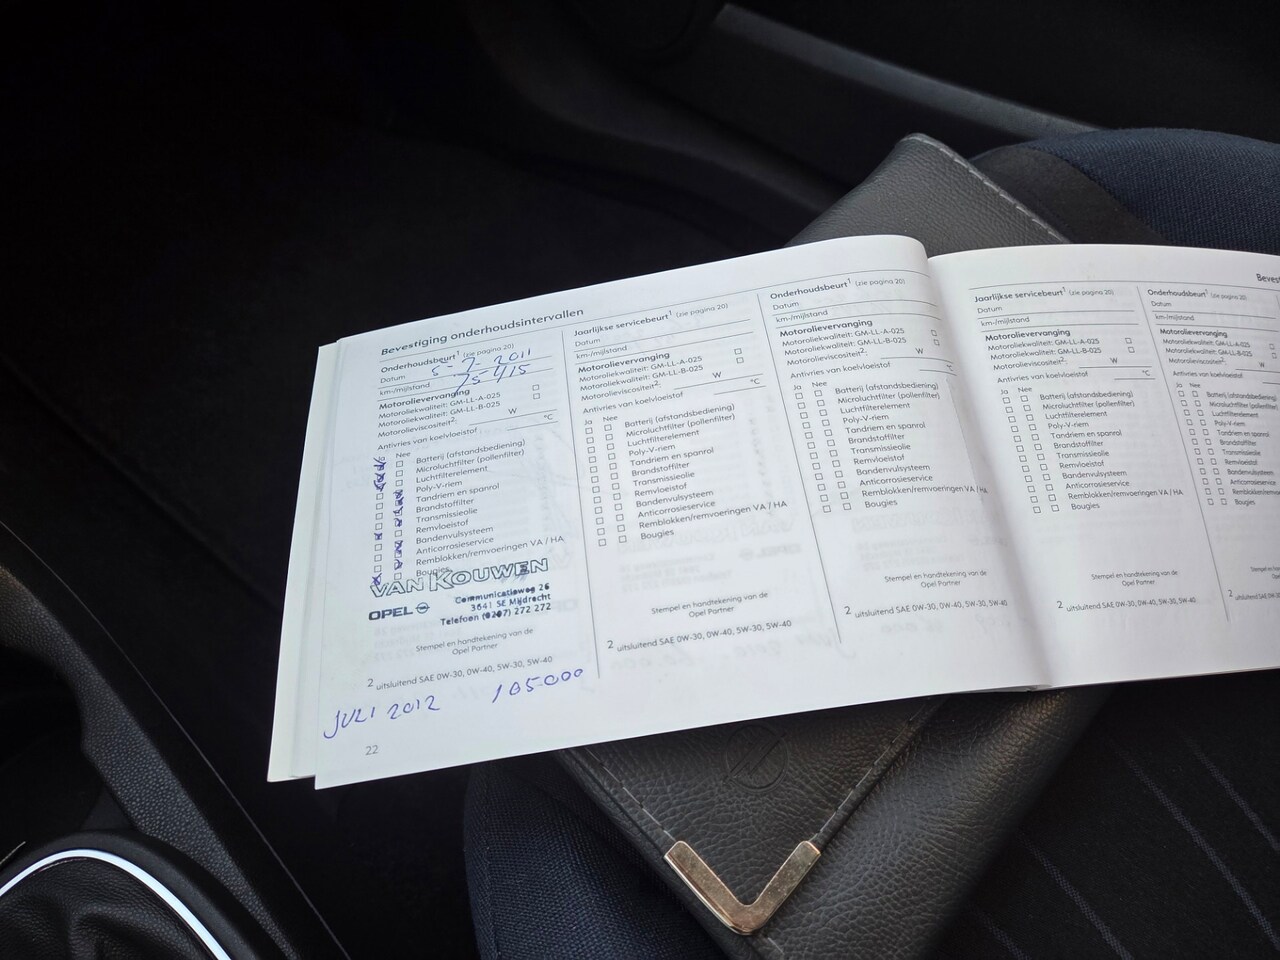 Bevestiging onderhoudsintervallen
Onderhoudsbeurt¹ (zie pagina 20)
Datum 5-7-2011
km-/mijlstand 75415
Motorolievervanging
Motoroliekwaliteit: GM-LL-A-025
Motoroliekwaliteit: GM-LL-B-025
Motorolieviscositeit²: W
Antivries van koelvloeistof °C
Nee
Batterij (afstandsbediening)
Microluchtfilter (pollenfilter)
Luchtfilterelement
Poly-V-riem
Tandriem en spanrol
Brandstoffilter
Transmissieolie
Remvloeistof
Bandenvulsysteem
Anticorrosieservice
Remblokken/remvoeringen VA / HA
Bougies
VAN KOUWEN
OPEL
Communicatieweg 26
3641 SE Mijdrecht
Telefoon (0297) 272 272
Stempel en handtekening van de
Opel Partner
2 uitsluitend SAE 0W-30, 0W-40, 5W-30, 5W-40
JULI 2012 105000
22
Jaarlijkse servicebeurt¹ (zie pagina 20)
Datum
km-/mijlstand
Motorolievervanging
Motoroliekwaliteit: GM-LL-A-025
Motoroliekwaliteit: GM-LL-B-025
Motorolieviscositeit²: W
Antivries van koelvloeistof °C
Ja Nee
Batterij (afstandsbediening)
Microluchtfilter (pollenfilter)
Luchtfilterelement
Poly-V-riem
Tandriem en spanrol
Brandstoffilter
Transmissieolie
Remvloeistof
Bandenvulsysteem
Anticorrosieservice
Remblokken/remvoeringen VA / HA
Bougies
Stempel en handtekening van de
Opel Partner
2 uitsluitend SAE 0W-30, 0W-40, 5W-30, 5W-40
Onderhoudsbeurt¹ (zie pagina 20)
Datum
km-/mijlstand
Motorolievervanging
Motoroliekwaliteit: GM-LL-A-025
Motoroliekwaliteit: GM-LL-B-025
Motorolieviscositeit²: W
Antivries van koelvloeistof °C
Ja Nee
Batterij (afstandsbediening)
Microluchtfilter (pollenfilter)
Luchtfilterelement
Poly-V-riem
Tandriem en spanrol
Brandstoffilter
Transmissieolie
Remvloeistof
Bandenvulsysteem
Anticorrosieservice
Remblokken/remvoeringen VA / HA
Bougies
Stempel en handtekening van de
Opel Partner
2 uitsluitend SAE 0W-30, 0W-40, 5W-30, 5W-40
Jaarlijkse servicebeurt¹ (zie pagina 20)
Datum
km-/mijlstand
Motorolievervanging
Motoroliekwaliteit: GM-LL-A-025
Motoroliekwaliteit: GM-LL-B-025
Motorolieviscositeit²: W
Antivries van koelvloeistof °C
Ja Nee
Batterij (afstandsbediening)
Microluchtfilter (pollenfilter)
Luchtfilterelement
Poly-V-riem
Tandriem en spanrol
Brandstoffilter
Transmissieolie
Remvloeistof
Bandenvulsysteem
Anticorrosieservice
Remblokken/remvoeringen VA / HA
Bougies
Stempel en handtekening van de
Opel Partner
2 uitsluitend SAE 0W-30, 0W-40, 5W-30, 5W-40
Onderhoudsbeurt¹ (zie pagina 20)
Datum
km-/mijlstand
Motorolievervanging
Motoroliekwaliteit: GM-LL-A-025
Motoroliekwaliteit: GM-LL-B-025
Motorolieviscositeit²: W
Antivries van koelvloeistof
Ja Nee
Batterij (afstandsbediening)
Microluchtfilter (pollenfilter)
Luchtfilterelement
Poly-V-riem
Tandriem en spanrol
Brandstoffilter
Transmissieolie
Remvloeistof
Bandenvulsysteem
Anticorrosieservice
Bougies
2